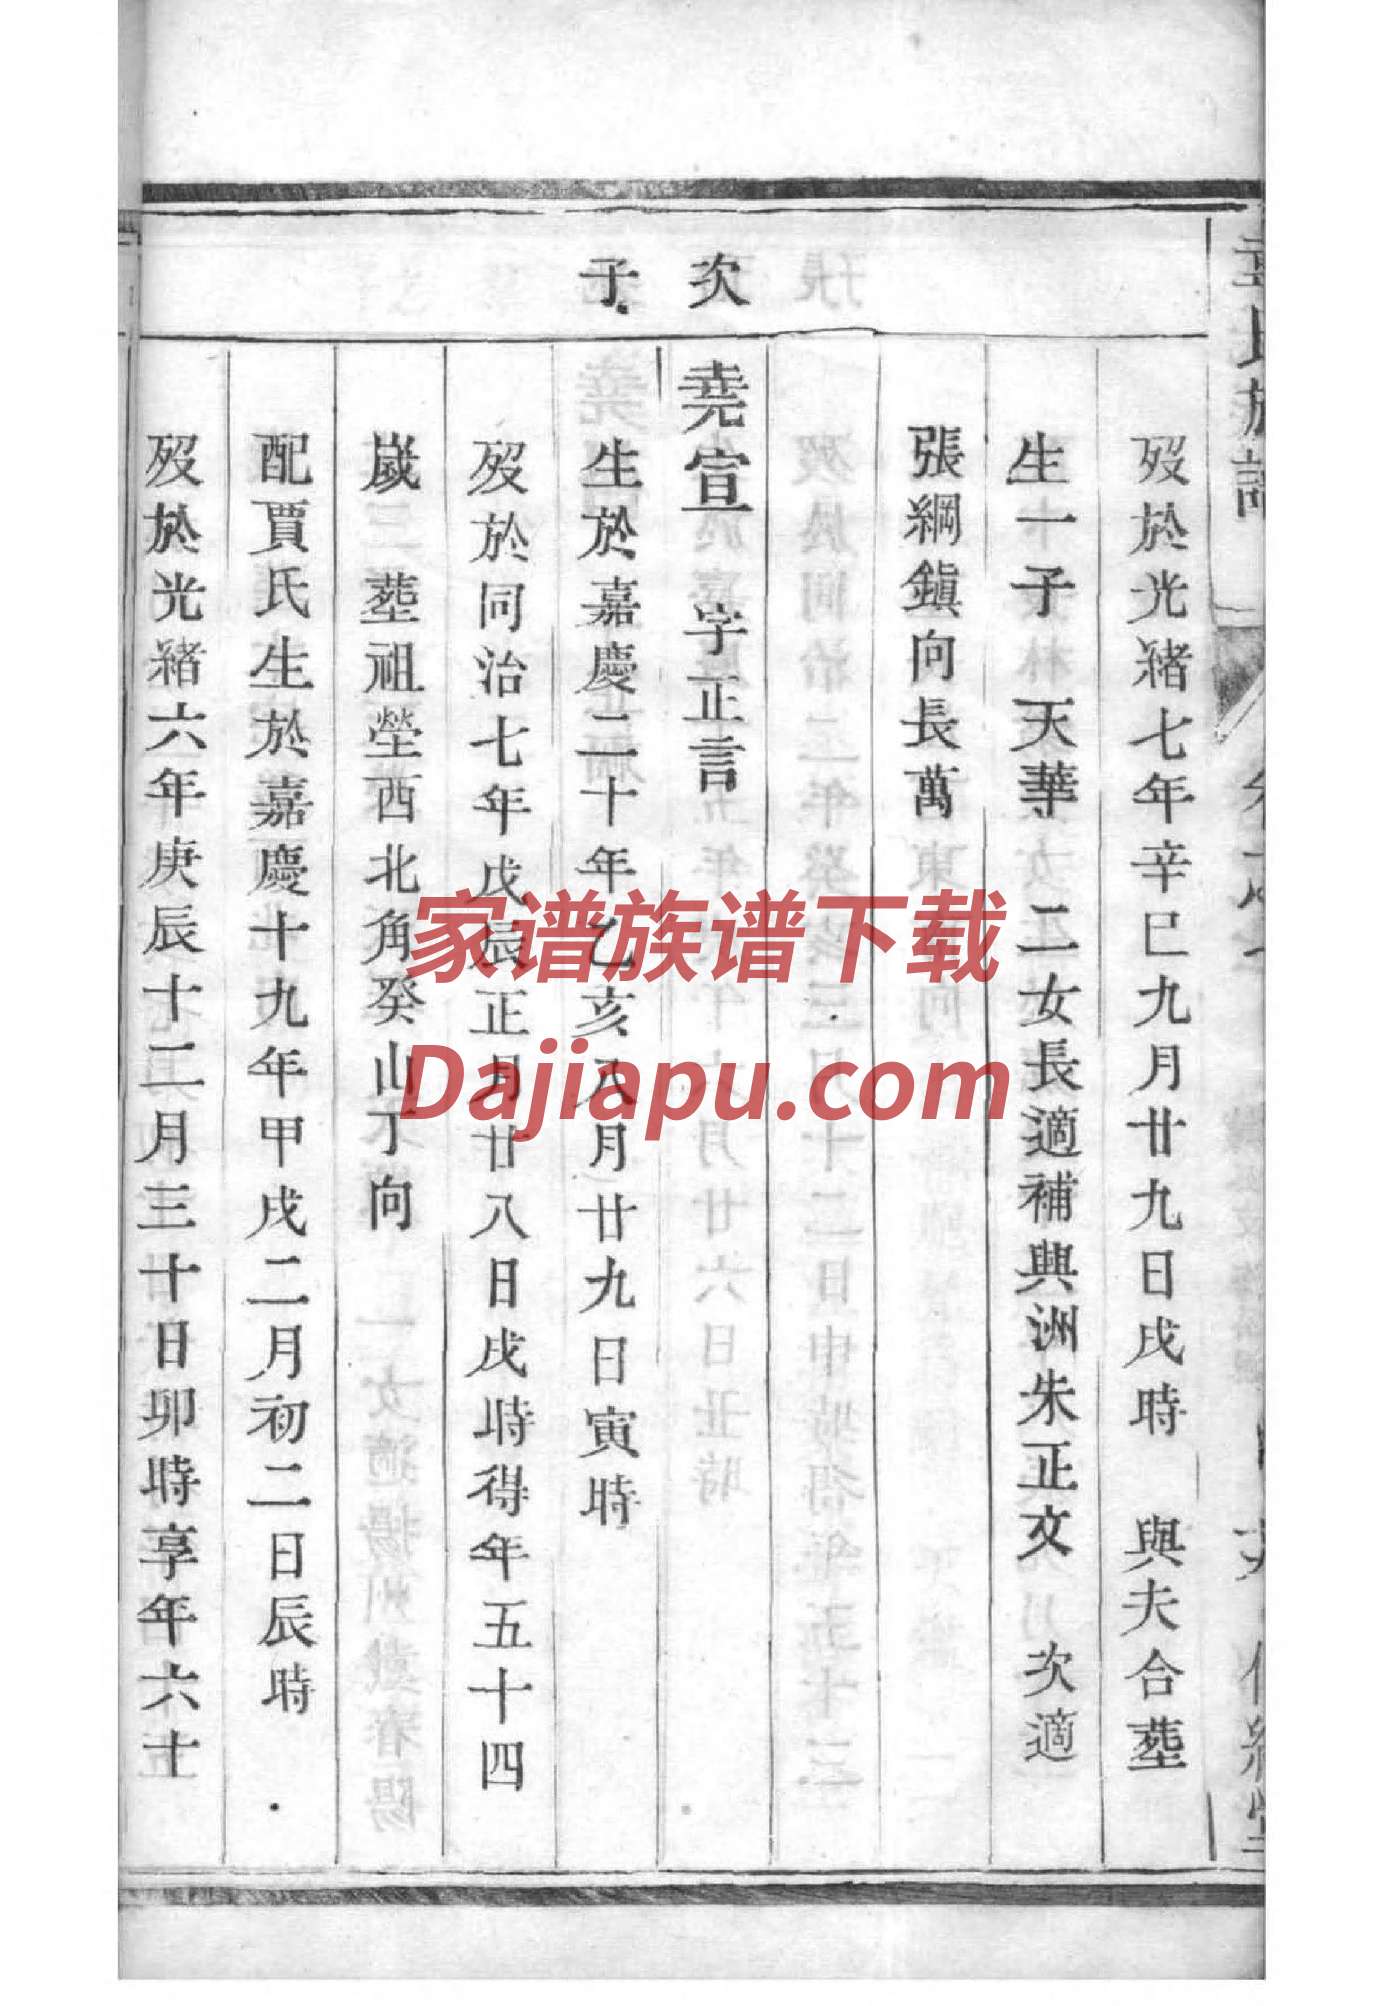 次子
歿於光緒七年辛巳九月廿九日戌時 與夫合塟
生一子 天華 二女長適補興洲朱正文 次適
張綱鎮向長萬
堯宣 字正言
生於嘉慶二十年乙亥八月廿九日寅時
歿於同治七年戊辰正月廿八日戌時得年五十四
嵗 塟祖塋西北角癸山丁向
配賈氏生於嘉慶十九年甲戌二月初二日辰時
歿於光緒六年庚辰十二月三十日卯時享年六十
家谱族谱下载
Dajiapu.com